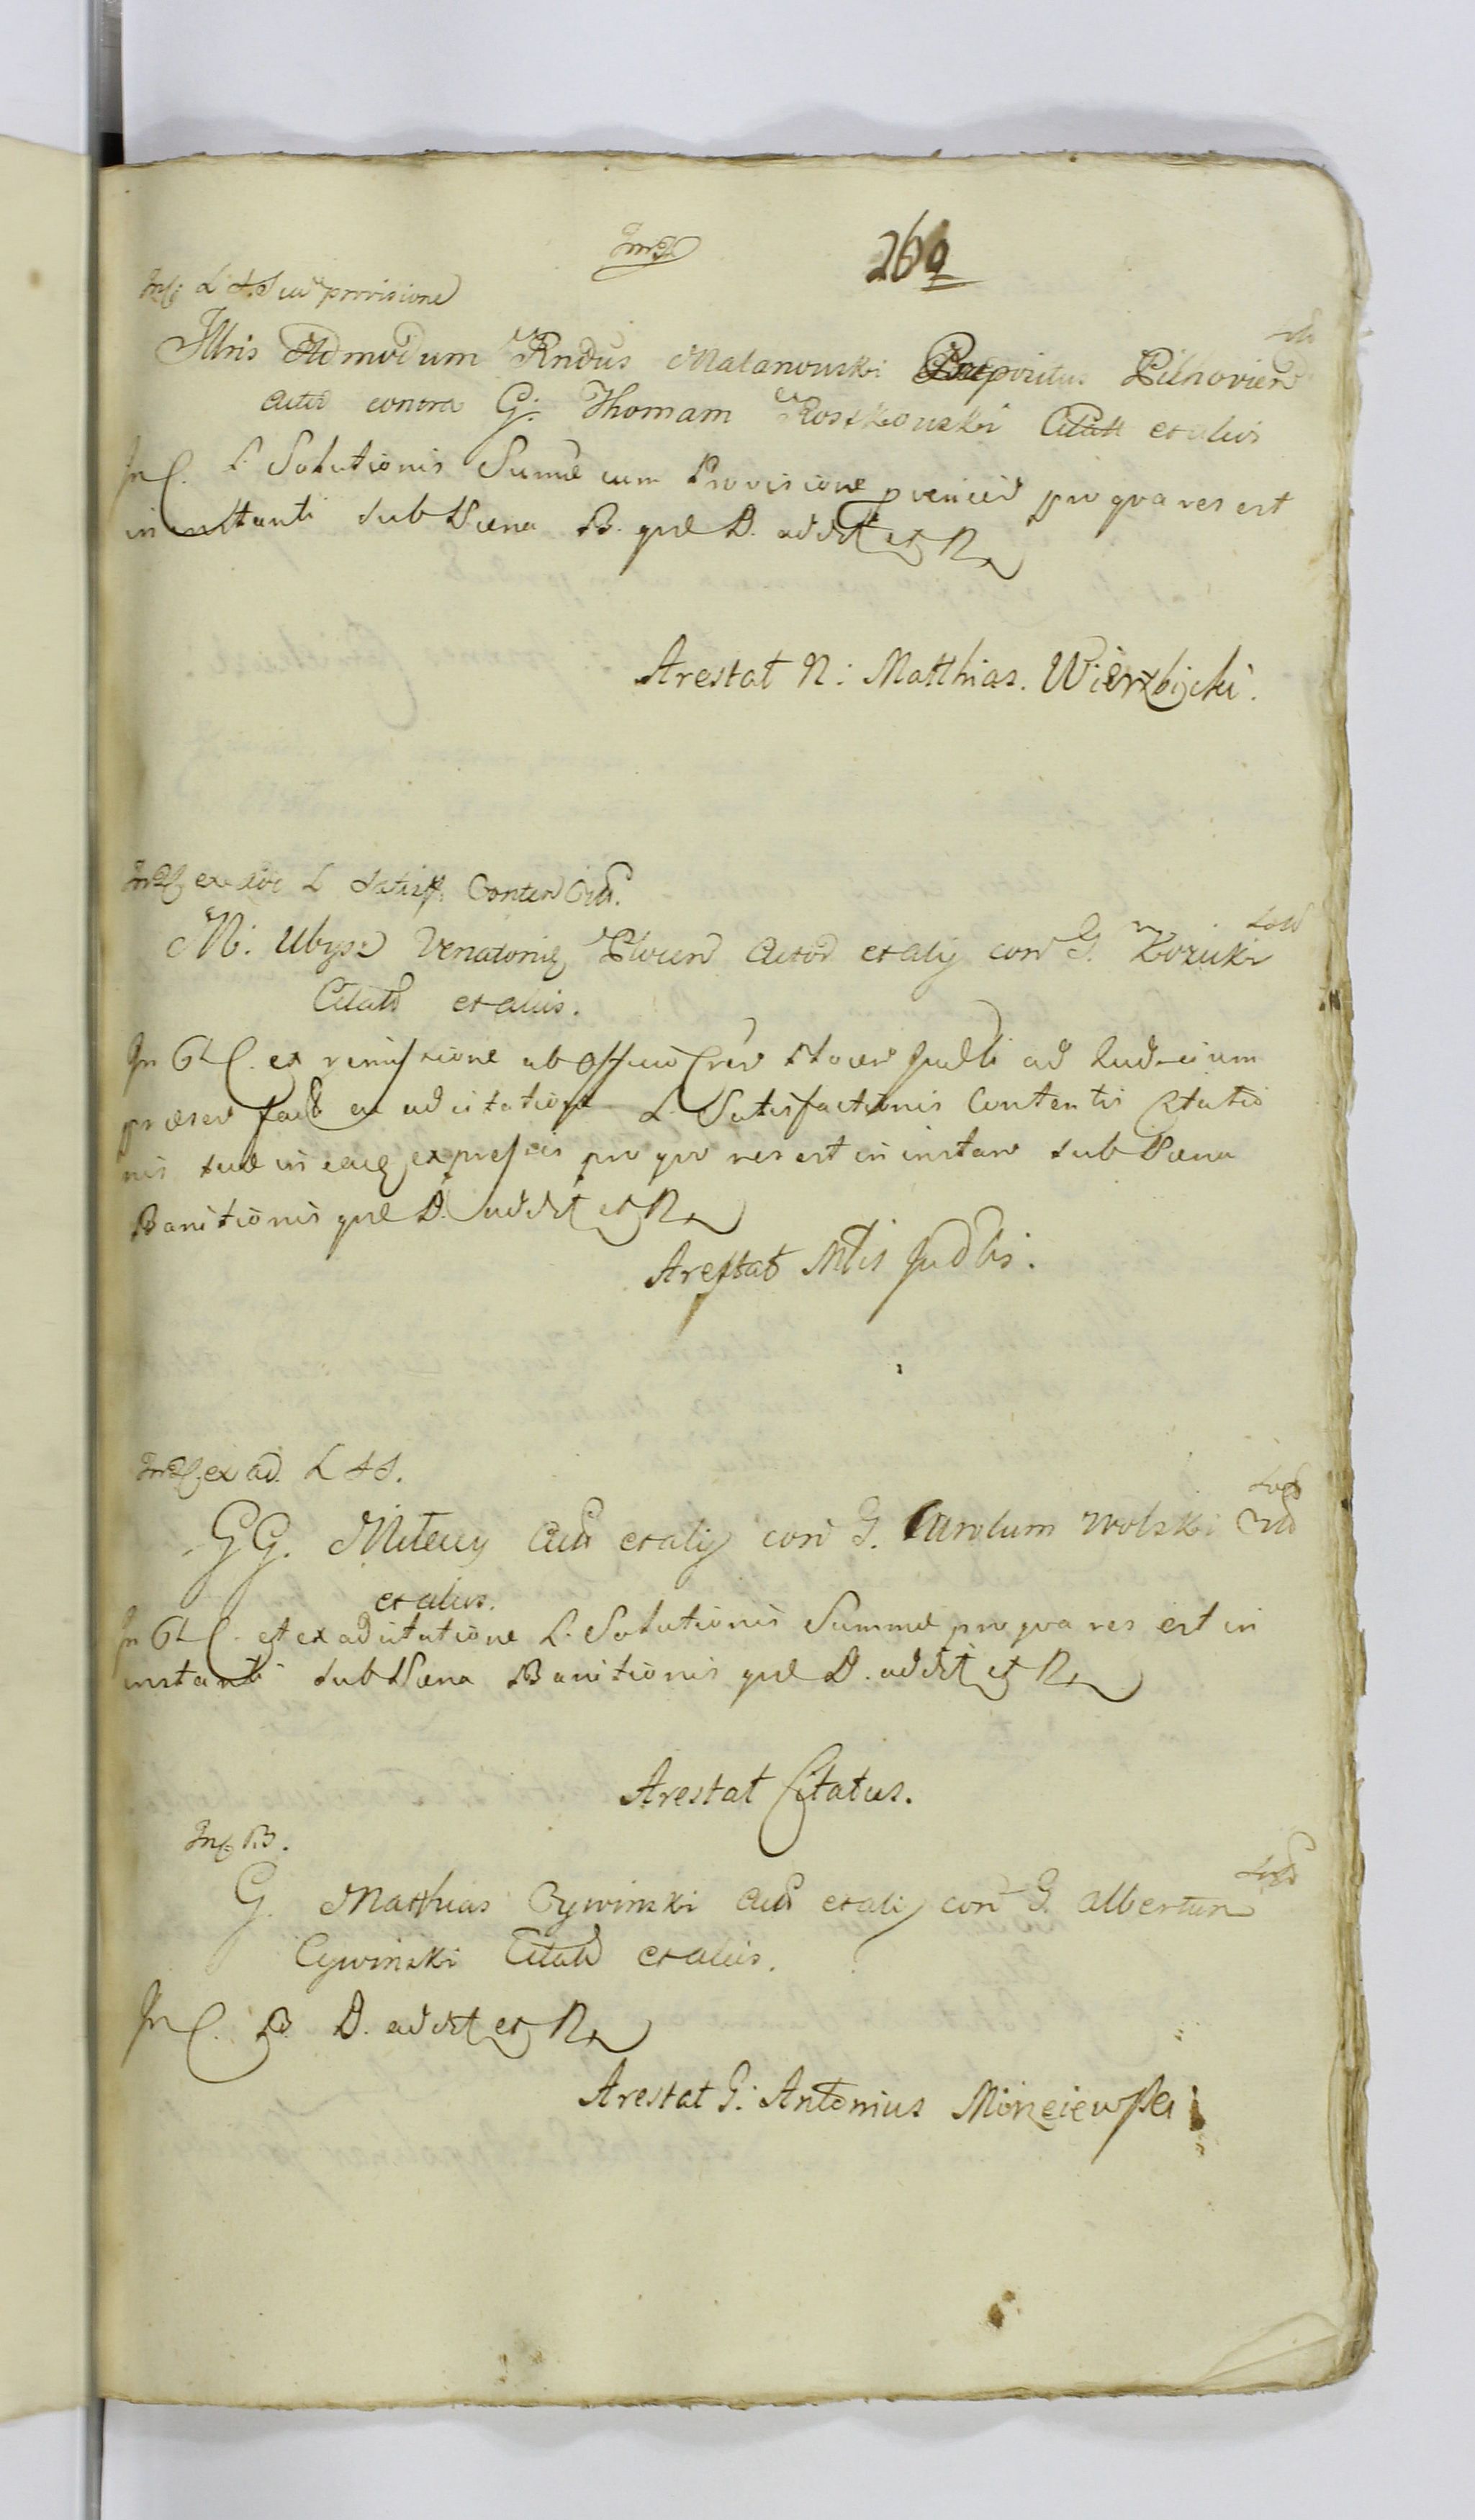 269
Inf: L S S cu provisione
Illris Admodum Rndus Malanowski Praepositus Pilnovien
Actor contra G: Thomam Roszkowski Citatt et aliis
In C. L. Solutionis Summe cum Provisione proveniend pro qva res est
in instanti sub Paena B. qve D. addit et R
Arestat N: Matthias. Wierzbicki.
ex adc L Satisf: Conten Citt.
M: Ubysz Venatoris Plocen Actor et alij con G. Kozicki
Citatt et aliis.
In C. ex remissione ab Officio Plocen Judlli ad Judicium
praesen fact ex adcitatione L. Satisfactionis Contentis Citatio
nis sue in eaq expressis pro qvo res est in instan sub Paena
Banitionis qve D. addit et R
Arestat Mtis Judlis.
ex ad. L S S.
GG. Miteccy Act et alij con G. Carolum Wolski Citt
et aliis.
In C. et ex adcitatione L. Solutionis Summe pro qva res est in
instanti sub Paena Banitionis qve D. addit et R
Arestat Citatus.
Inf B.
G. Matthias Cywinski Act et alij con G. Albertum
Cywinski Citatt et aliis.
In C. B. D. addit et R
Arestat G: Antonius